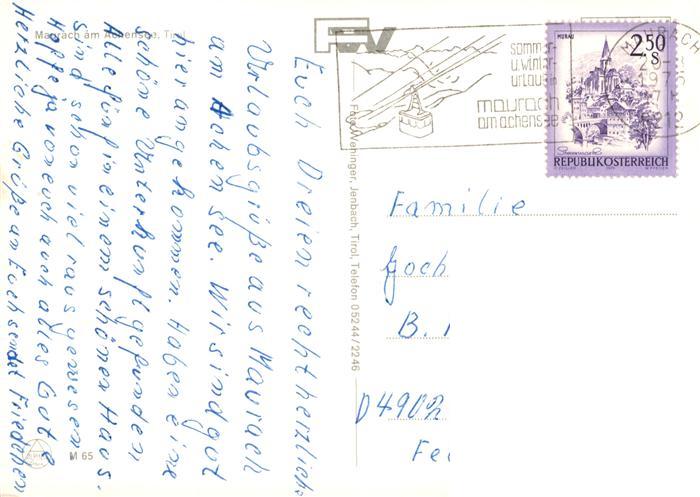 Maurach am Achensee, Tirol
Euch Dreien recht herzliche
Urlaubsgrüße aus Maurach
am Achensee. Wir sind gut
hier angekommen. Haben eine
schöne Unterkunft gefunden,
Alle fünf in einem schönen Haus.
Sind schon viel rausgewesen
Hoffe ja von euch auch alles Gute
Herzliche Grüße an Euch sendet Friedchen
M 65
Foto Wehninger, Jenbach, Tirol, Telefon 05244/2246
sommer
u.winter
urlaub
maurach
am achensee
MURAU
2.50
S
REPUBLIK ÖSTERREICH
Familie
Joch
B.
D 4902